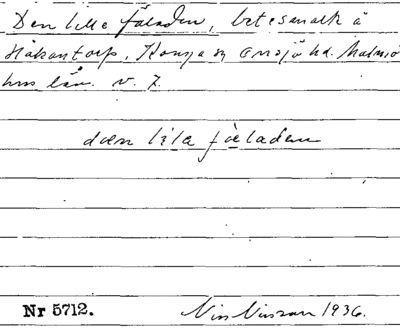 Den lille fäladen, betesmark å
Håkantorp, Konga sn Onsjö hd. Malmö
hus län. v. Z.
dæn lila fæladen
Nr 5712. Nils Nilsson 1936.